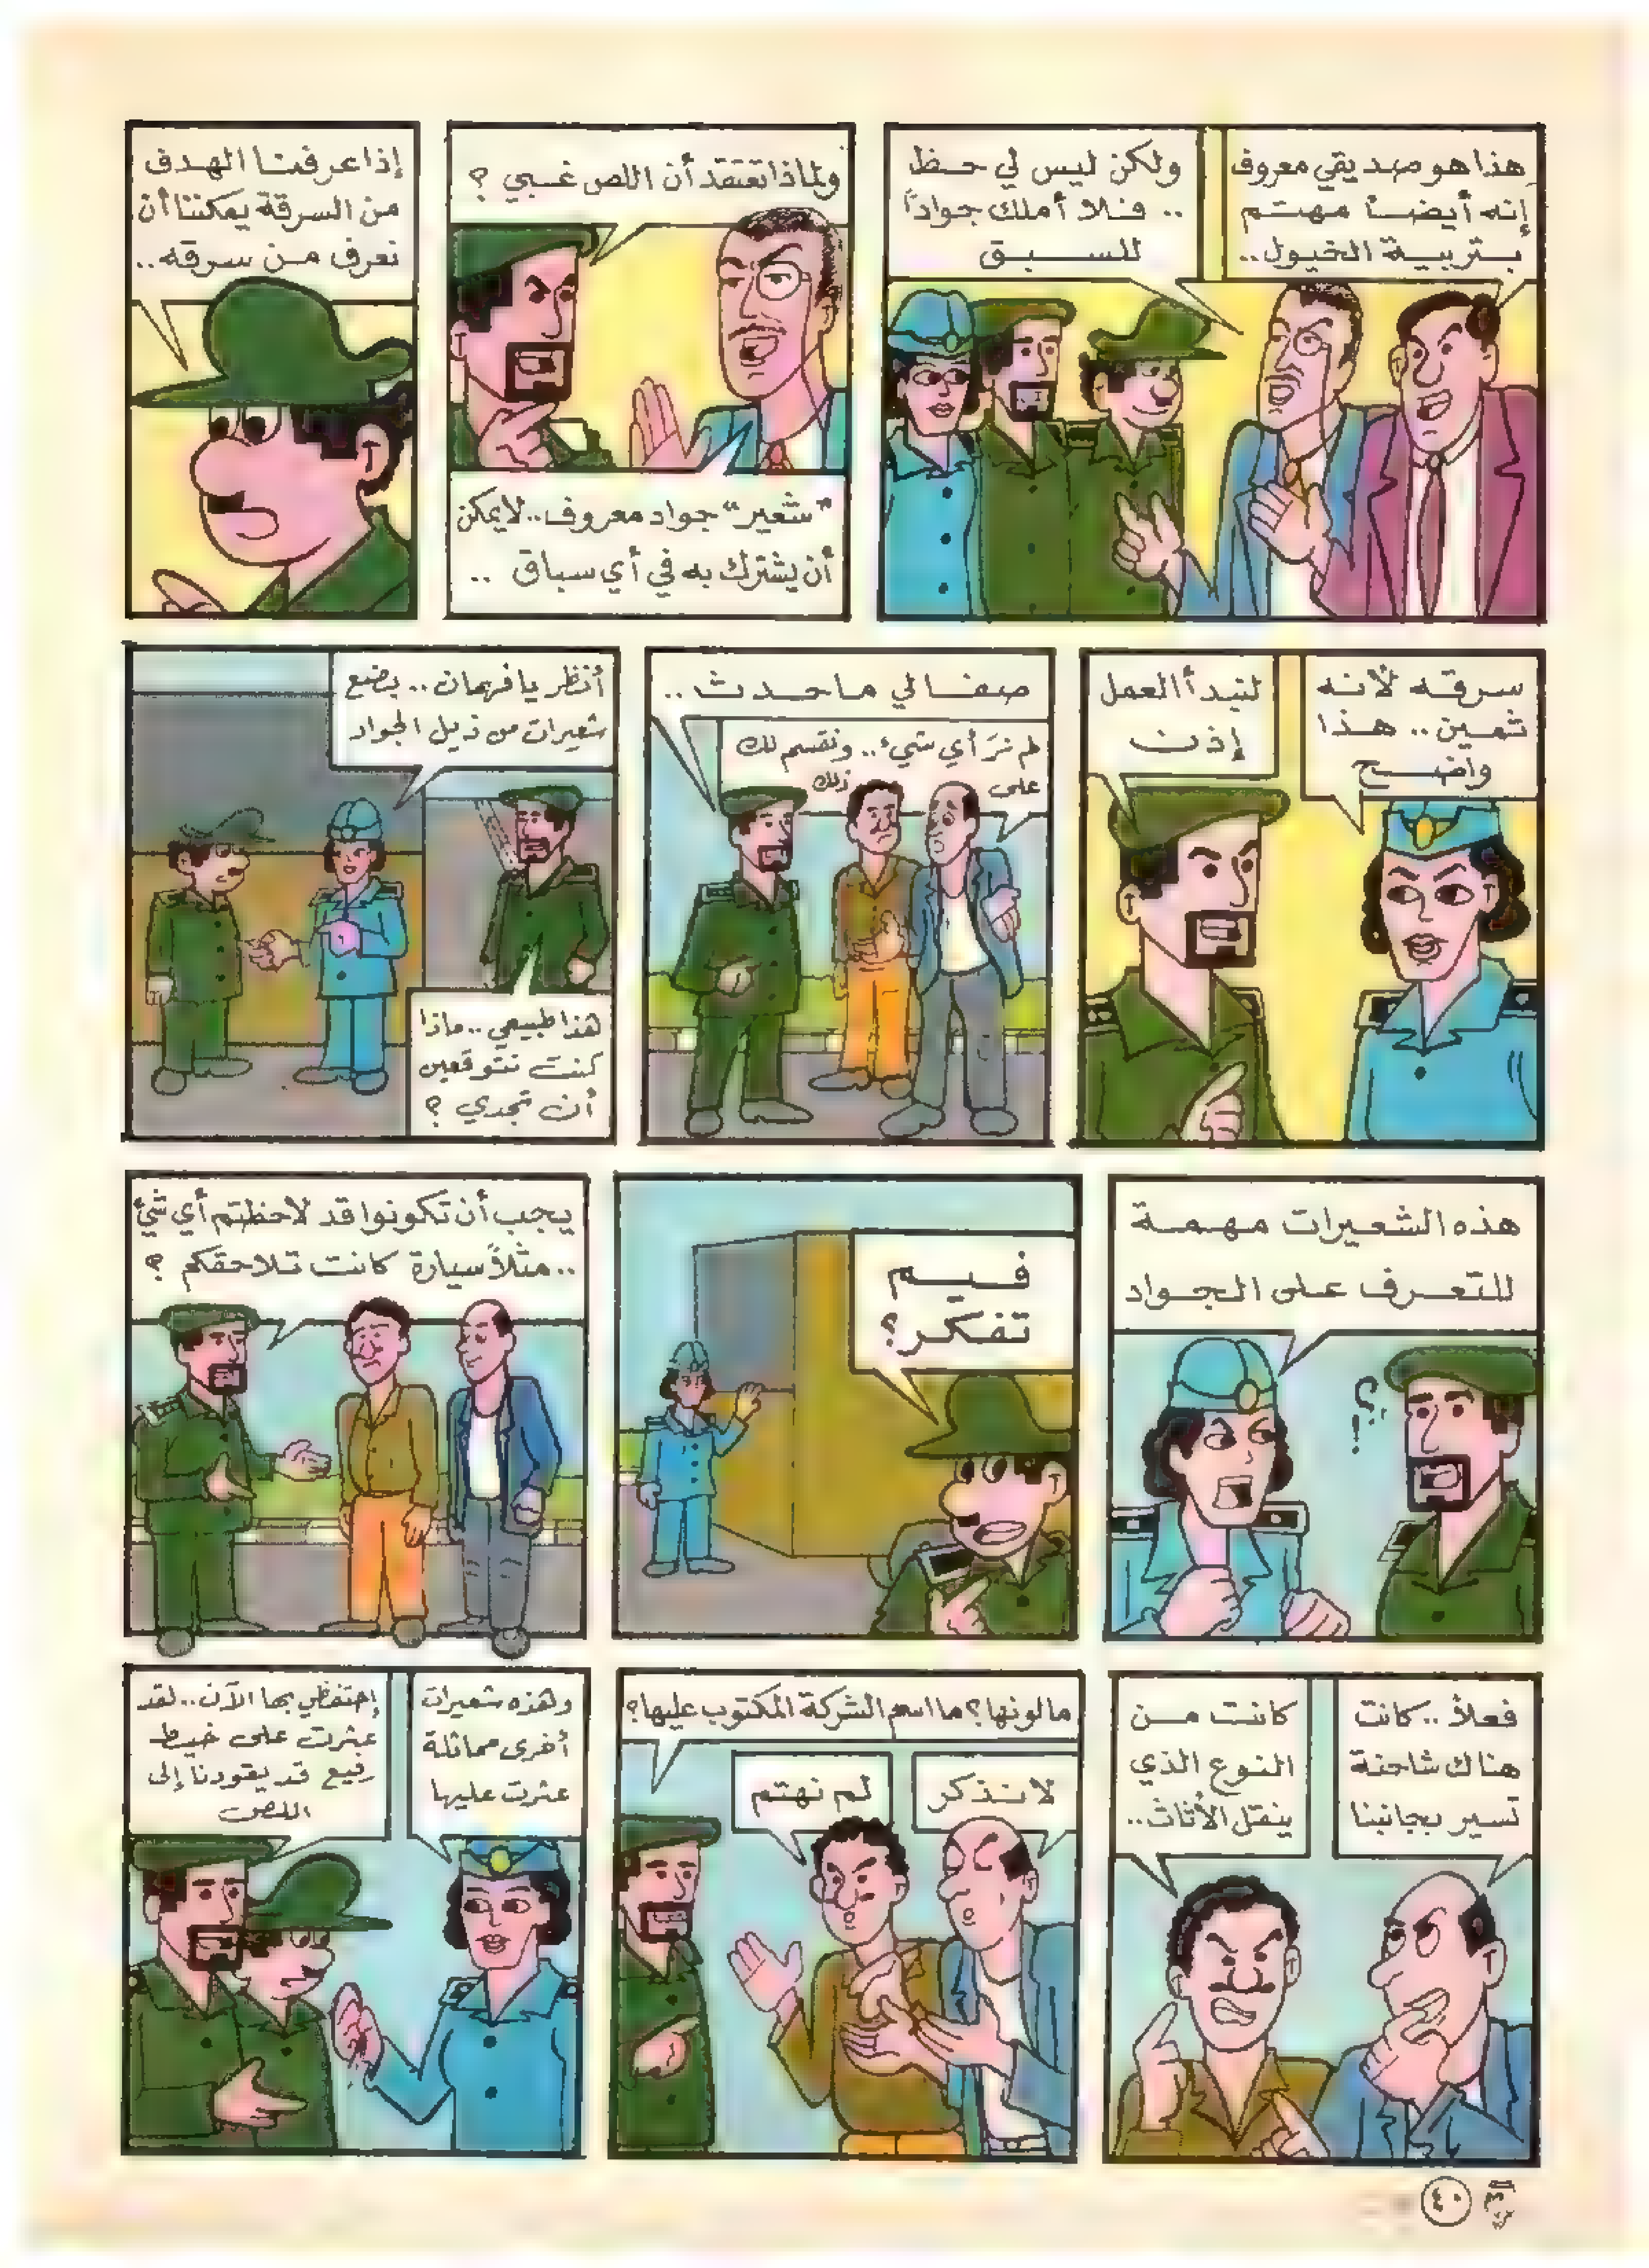 هذا هو صديقي معروف
إنه أيضاً مهتم
بتربية الخيول..
ولكن ليس لي حظ
.. فلا أملك جواداً
للسبق
ولماذا تعتقد أن اللص غبي ؟
"شعير" جواد معروف.. لا يمكن
أن يشترك به في أي سباق ..
إذا عرفنا الهدف
من السرقة يمكننا أن
نعرف من سرقه..
سرقه لأنه
ثمين.. هذا
واضح
لنبدأ العمل
إذن
صفا لي ما حدث ..
لم نرَ أي شيء.. ونقسم لك
على ذلك
أنظر يا فرهان.. بضع
شعيرات من ذيل الجواد
هذا طبيعي.. ماذا
كنت تتوقعين
أن تجدي ؟
هذه الشعيرات مهمة
للتعرف على الجواد
؟!
فيم
تفكر؟
يجب أن تكونوا قد لاحظتم أي شيئ
.. مثلاً سيارة كانت تلاحقكم ؟
فعلاً.. كانت
هناك شاحنة
تسير بجانبنا
كانت من
النوع الذي
ينقل الأثاث..
ما لونها؟ ما اسم الشركة المكتوب عليها؟
لا نذكر
لم نهتم
وهذه شعيرات
أخرى مماثلة
عثرت عليها
إحتفظي بها الآن.. لقد
عثرت على خيط
رفيع قد يقودنا إلى
اللص
٤٠